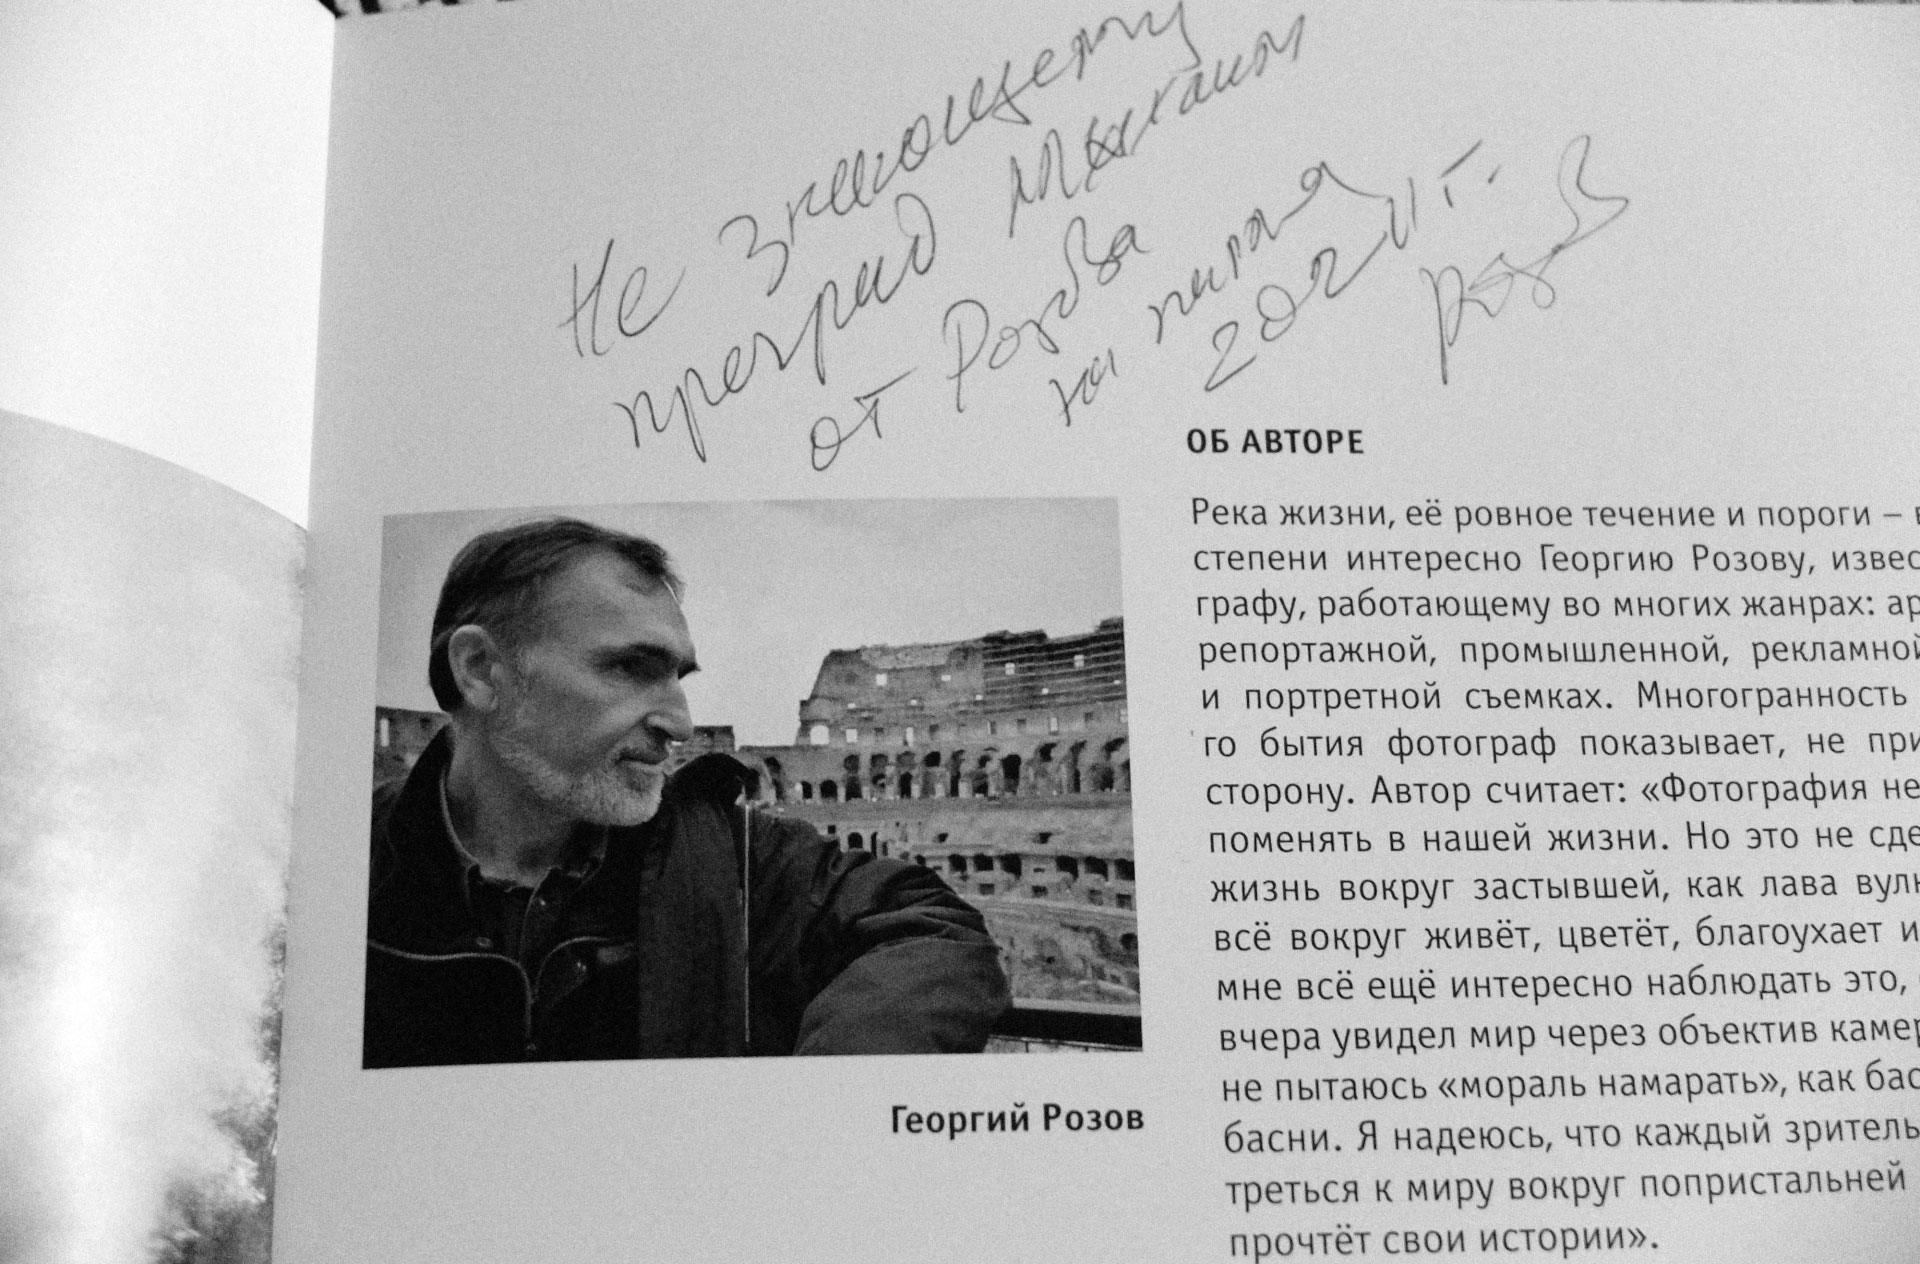 Не знающему
преград
от Розова
на память
2021 г.
Розов
ОБ АВТОРЕ
Река жизни, её ровное течение и пороги –
степени интересно Георгию Розову, извес
графу, работающему во многих жанрах: ар
репортажной, промышленной, рекламной
и портретной съемках. Многогранность
го бытия фотограф показывает, не при
сторону. Автор считает: «Фотография не
поменять в нашей жизни. Но это не сде
жизнь вокруг застывшей, как лава вул
всё вокруг живёт, цветёт, благоухает и
мне всё ещё интересно наблюдать это,
вчера увидел мир через объектив камер
не пытаюсь «мораль намарать», как бас
басни. Я надеюсь, что каждый зритель
треться к миру вокруг попристальней
прочтёт свои истории».
Георгий Розов